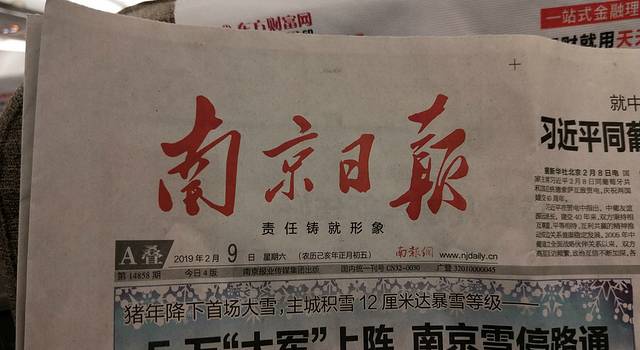 东方财富网
一站式金融理
财就用天天
南京日报
责任铸就形象
A叠
2019年2月9日 星期六 (农历己亥年正月初五) 南报网 www.njdaily.cn
第14858期 今日4版 南京报业传媒集团出版 国内统一刊号CN32-0030 广登32010000045
猪年降下首场大雪,主城积雪12厘米达暴雪等级——
万“大军”上阵 南京雪停路通
就中
习近平同葡
据新华社北京2月8日电 国
家主席习近平2月8日同葡萄牙共